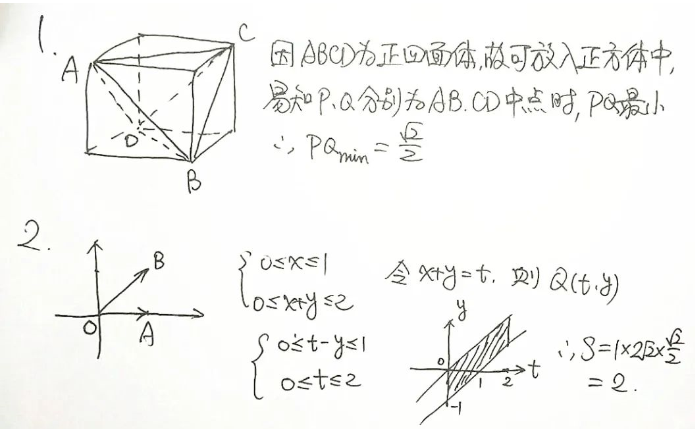 1.
A
C
D
B
因ABCD为正四面体,故可放入正方体中,
易知P、Q分别为AB.CD中点时,PQ最小
∴PQmin=√2/2
2.
B
O
A
{0≤x≤1
0≤x+y≤2
{0≤t-y≤1
0≤t≤2
令x+y=t.则Q(t,y)
y
0
1
2
t
-1
∴S=1×2√2×√2/2
=2.